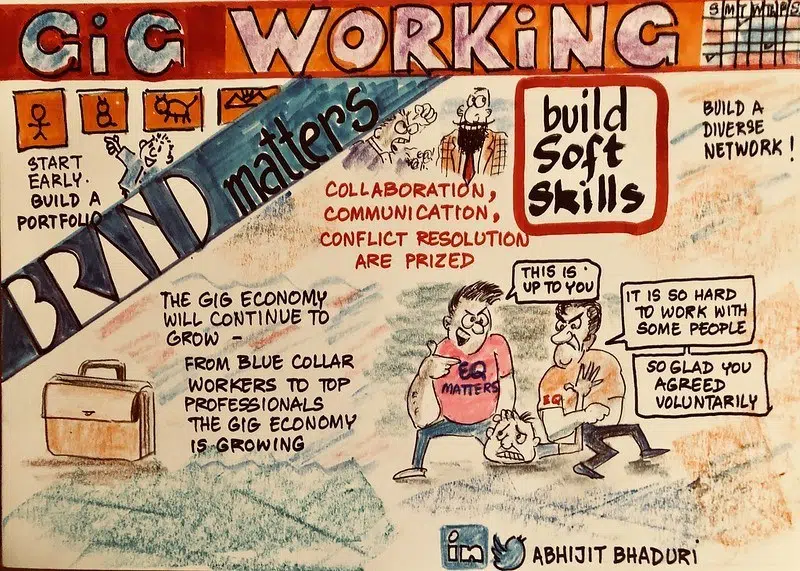 GiG WORKiNG
S M T W Th F S
START
EARLY.
BUILD A
PORTFOLIO
BRAND matters
COLLABORATION,
COMMUNICATION,
CONFLICT RESOLUTION
ARE PRIZED
build
Soft
Skills
BUILD A
DIVERSE
NETWORK!
THE GIG ECONOMY
WILL CONTINUE TO
GROW –
FROM BLUE COLLAR
WORKERS TO TOP
PROFESSIONALS
THE GIG ECONOMY
IS GROWING
THIS IS
UP TO YOU
IT IS SO HARD
TO WORK WITH
SOME PEOPLE
SO GLAD YOU
AGREED
VOLUNTARILY
EQ
MATTERS
EQ
in
ABHIJIT BHADURI